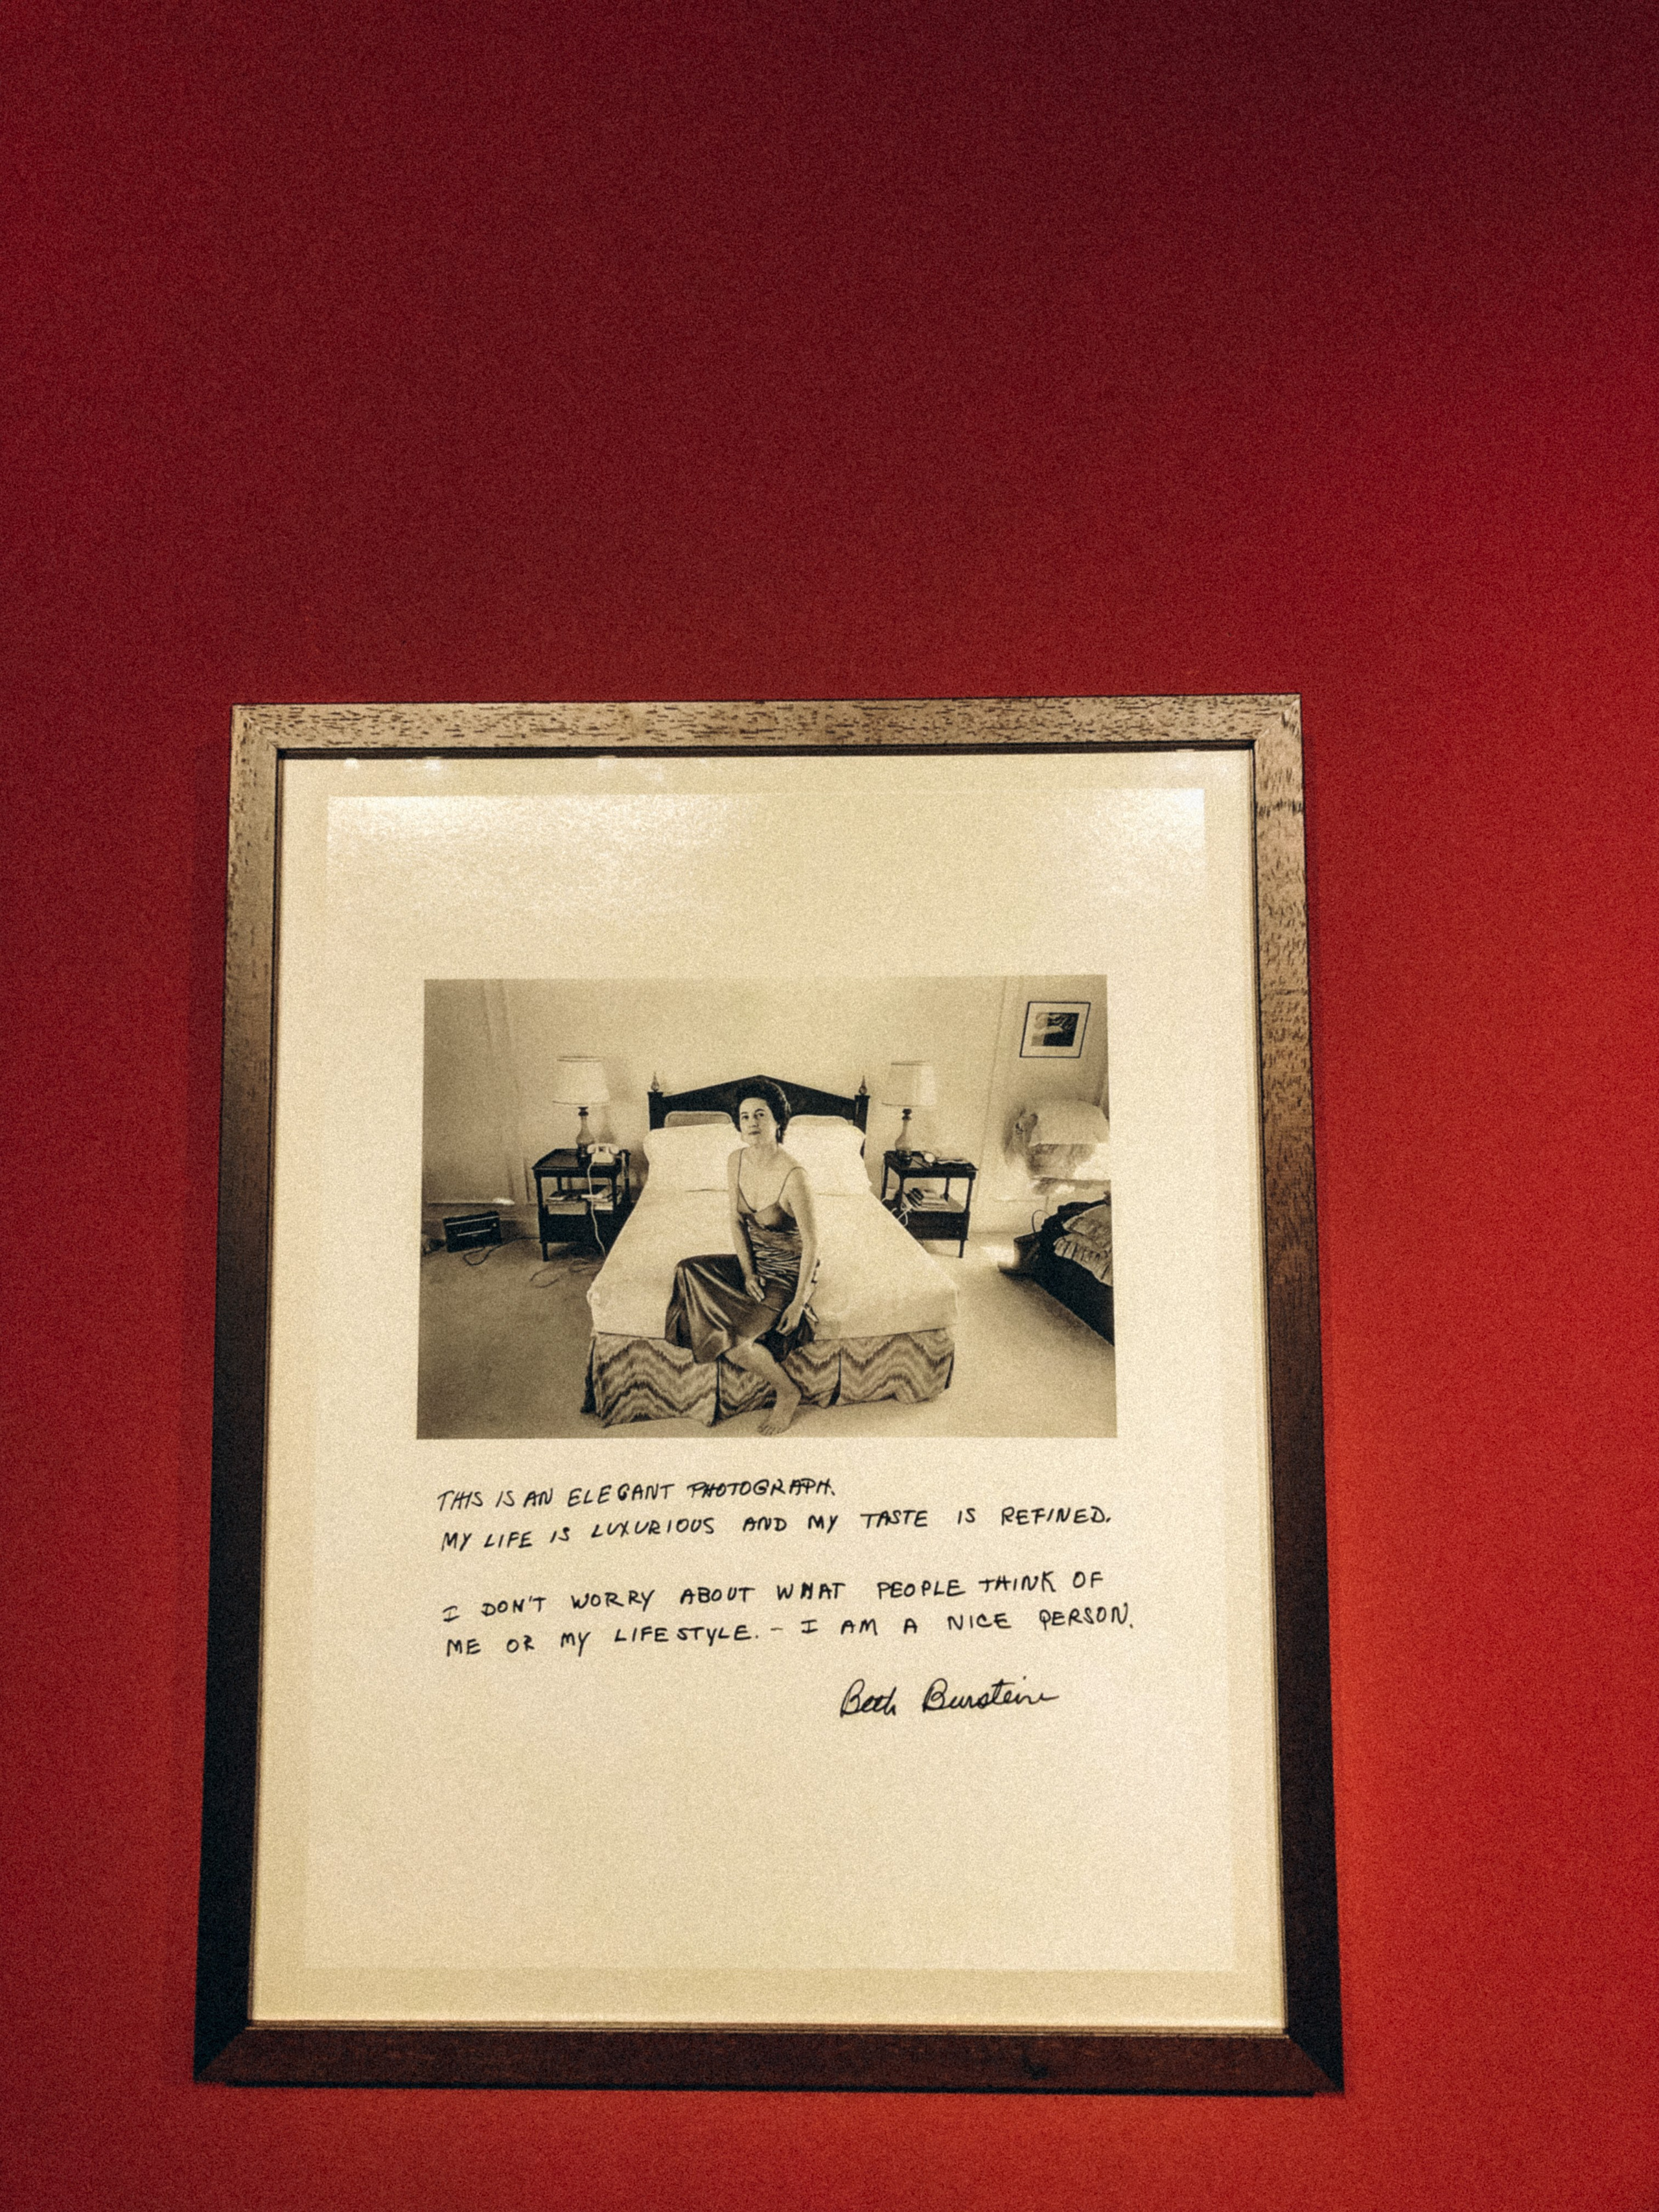 THIS IS AN ELEGANT PHOTOGRAPH.
MY LIFE IS LUXURIOUS AND MY TASTE IS REFINED.
I DON'T WORRY ABOUT WHAT PEOPLE THINK OF
ME OR MY LIFESTYLE. - I AM A NICE PERSON.
Beth Burstein